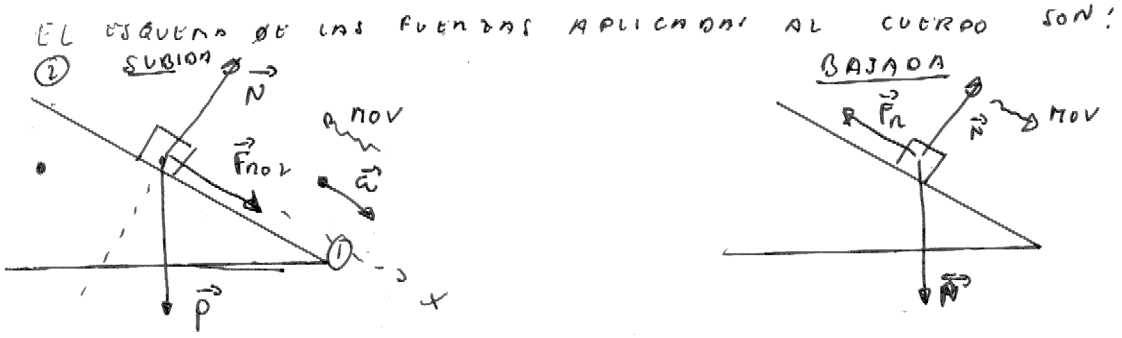 EL ESQUEMA DE LAS FUERZAS APLICADAS AL CUERPO SON:
② SUBIDA
BAJADA
N
MOV
Froz
a
①
x
P
Fr
N
MOV
P